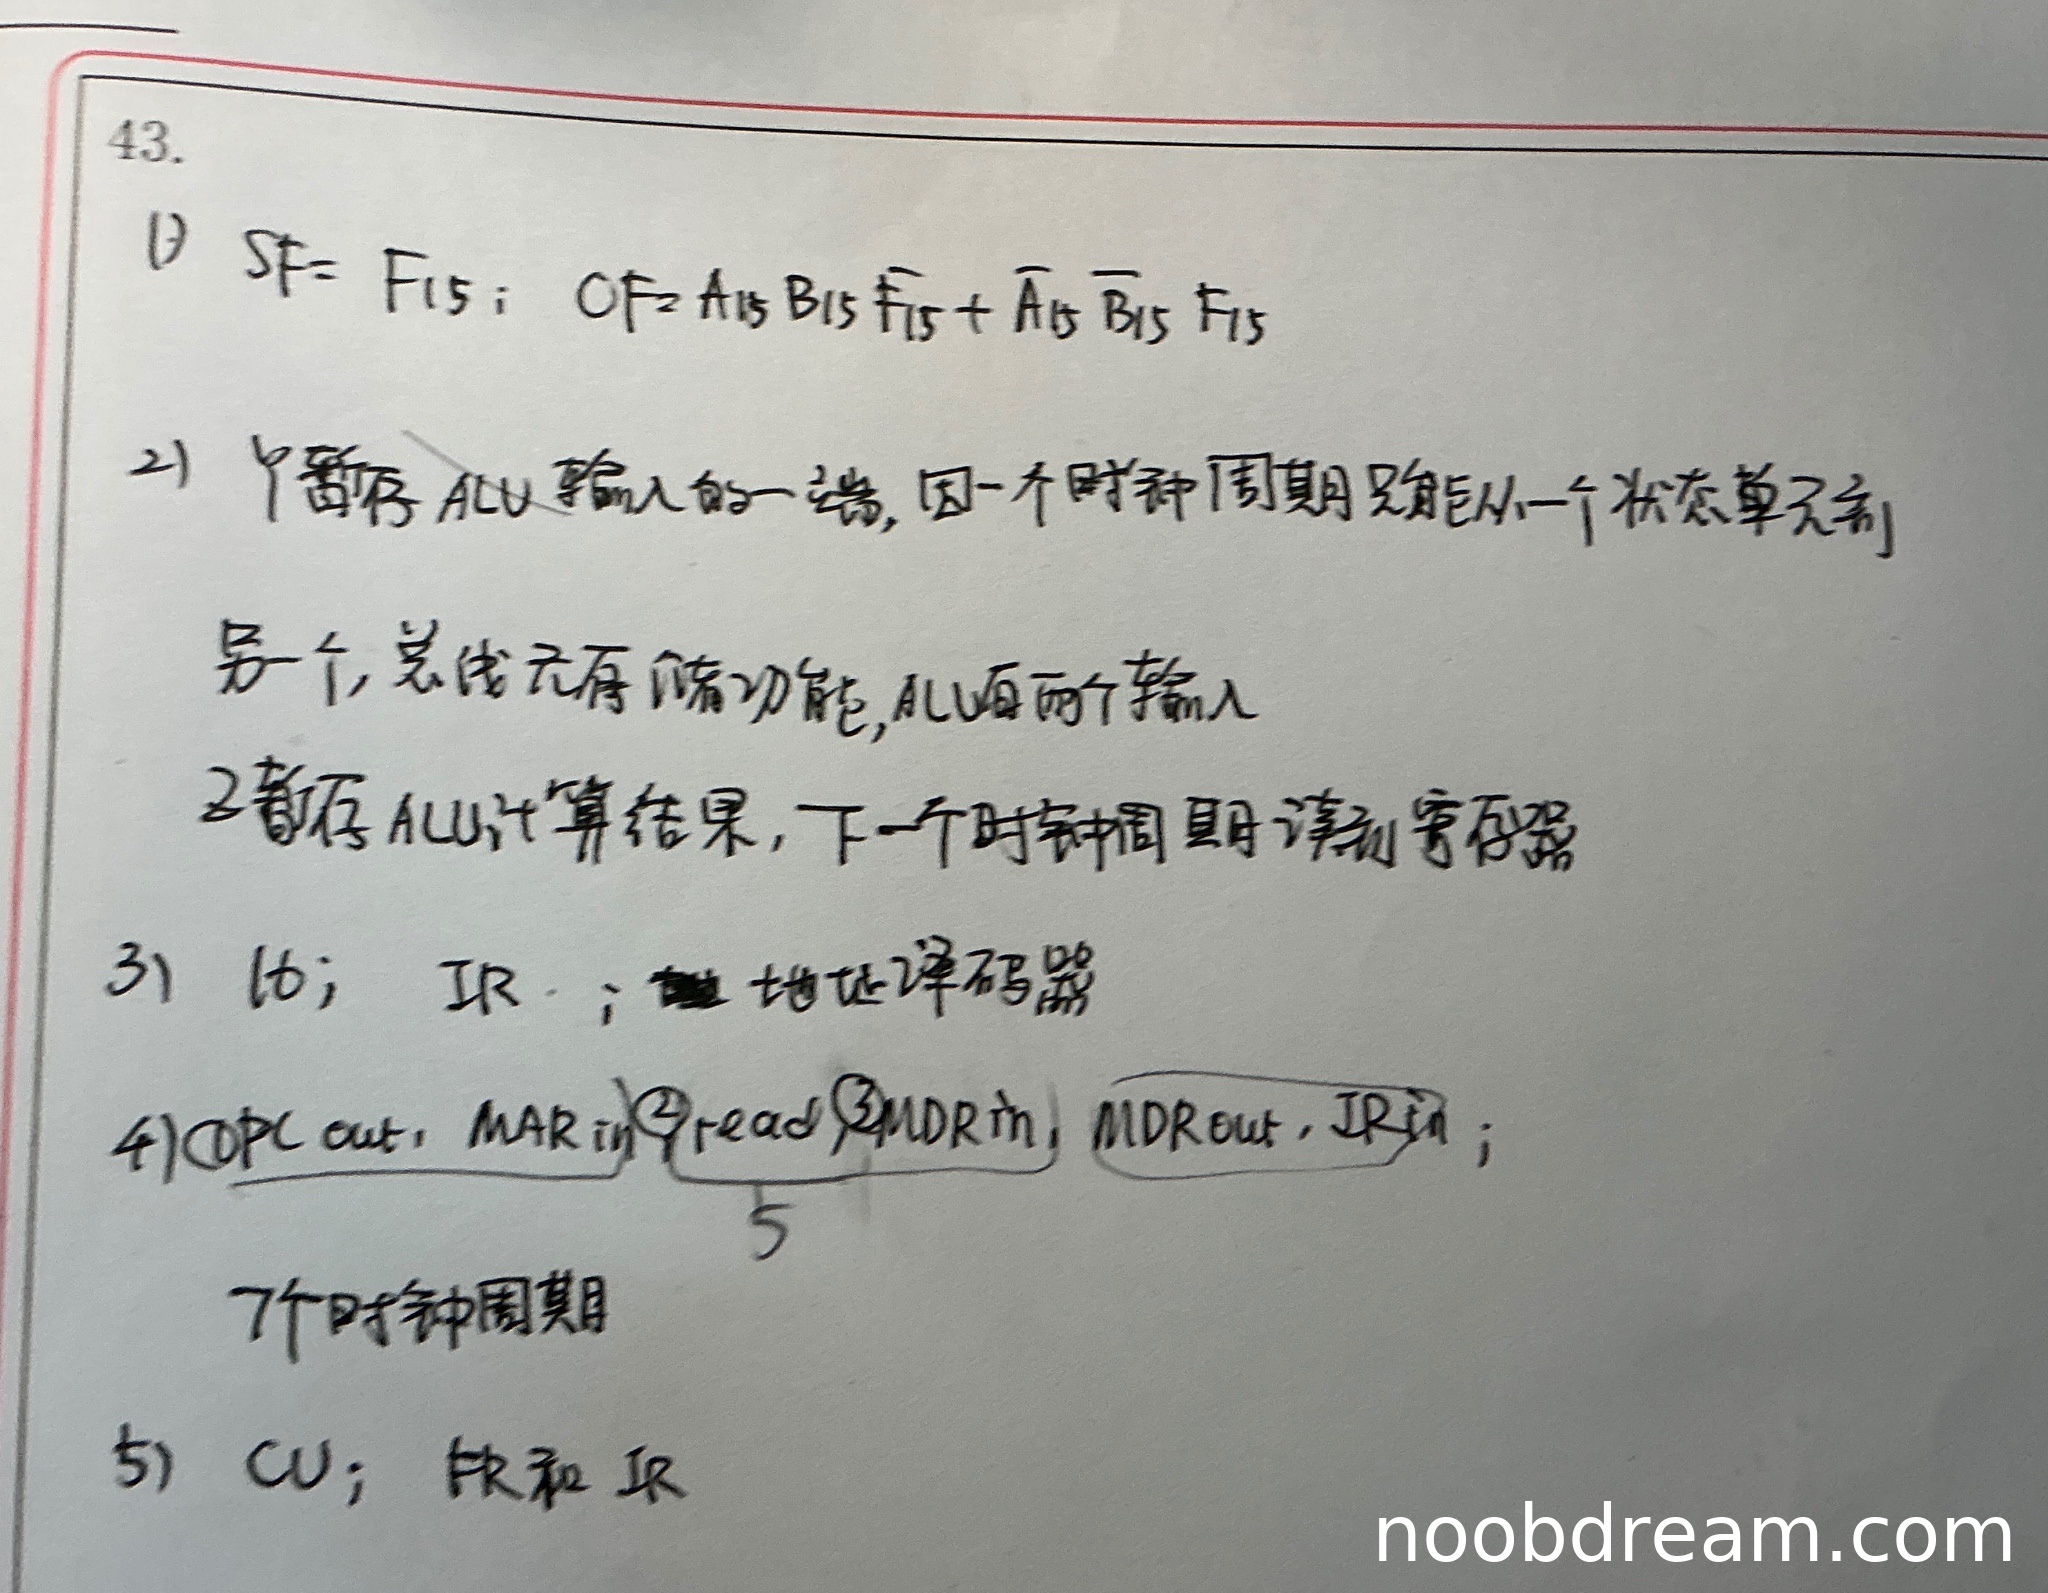 43.
1) SF= F15; OF= A15 B15 F̅15 + A̅15 B̅15 F15
2) Y暂存ALU输入的一端,因一个时钟周期只能从一个状态单元到
另一个,总线无存储功能,ALU有两个输入
Z暂存ALU计算结果,下一个时钟周期读到寄存器
3) 16; IR ; 地址译码器
4) ①PCout, MARin ②read, ③MDRin, MDRout, IRin;
5
7个时钟周期
5) CU; FR和IR
noobdream.com